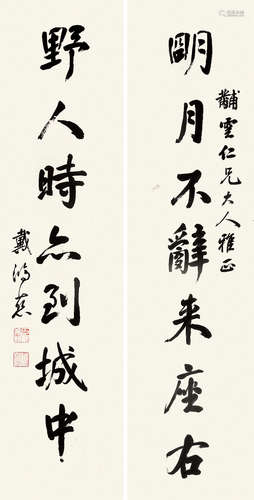 明月不辭来座右
黼雲仁兄大人雅正
野人時亦到城中
戴鴻慈